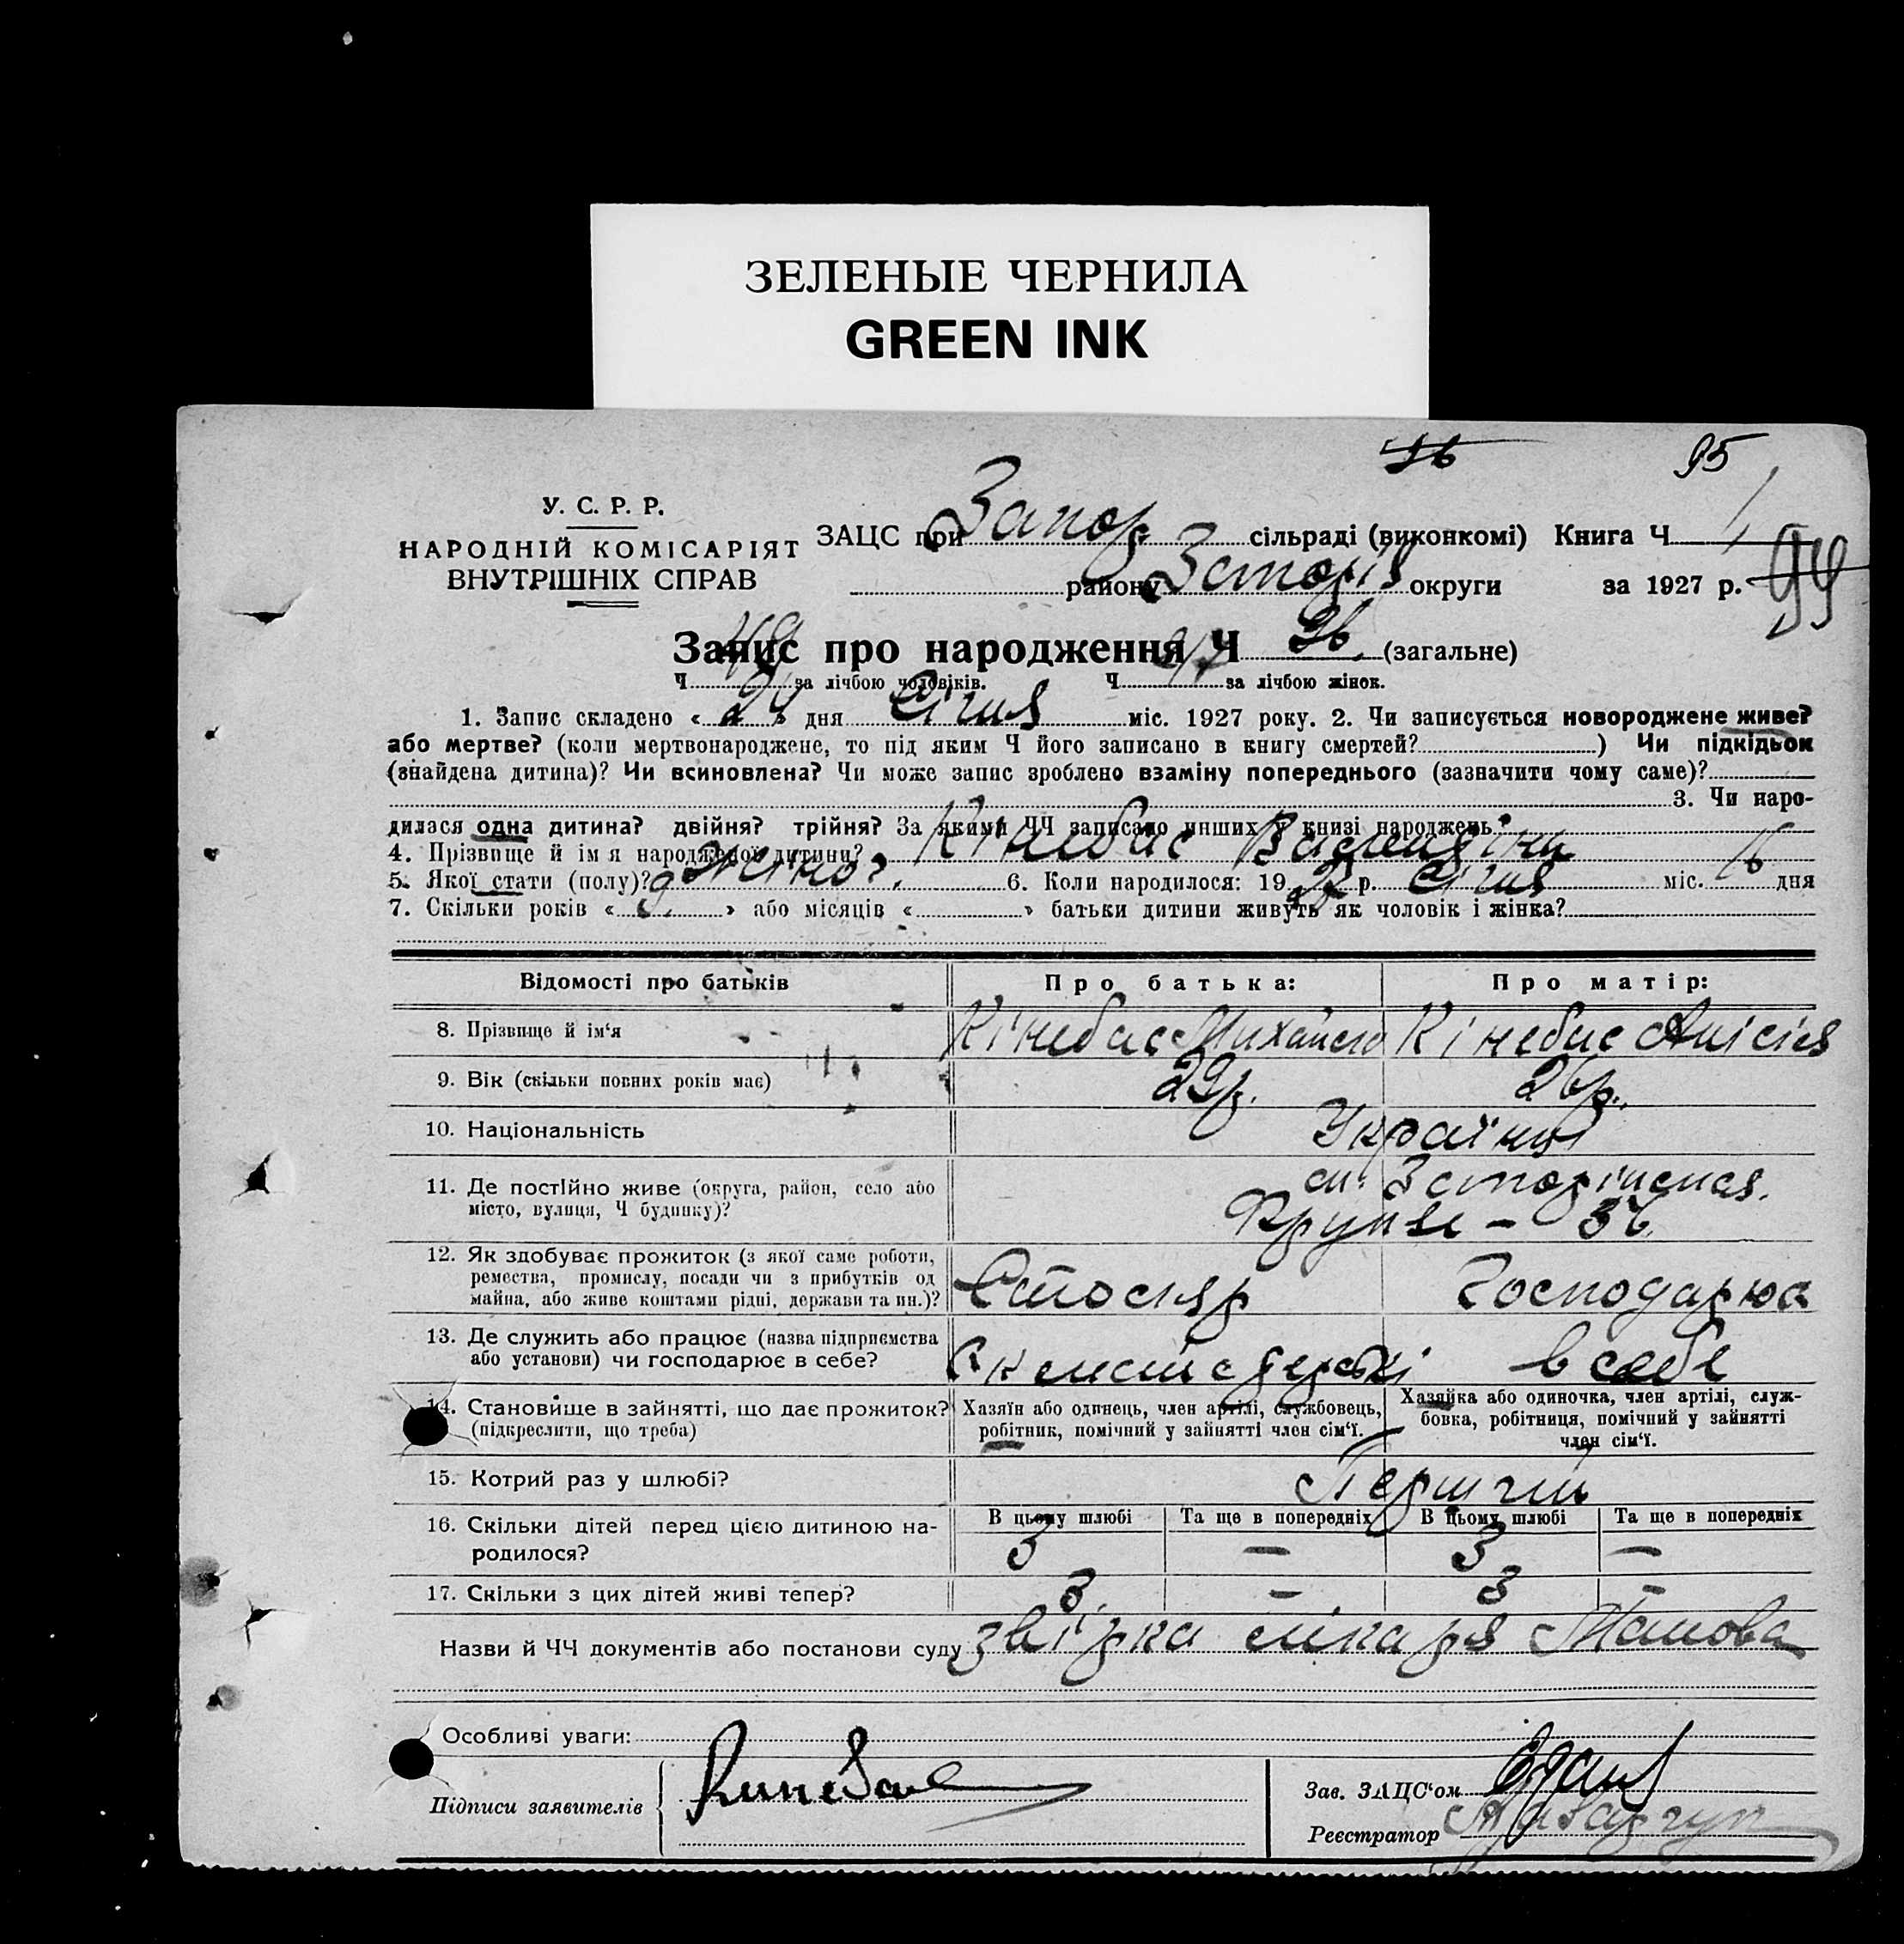 ЗЕЛЕНЫЕ ЧЕРНИЛА
GREEN INK
95
У. С. Р. Р.
НАРОДНІЙ КОМІСАРІЯТ
ВНУТРІШНІХ СПРАВ
ЗАЦС при Запор сільраді (виконкомі) Книга Ч 1
району округи за 1927 р. 99
Запис про народження Ч 96 (загальне)
Ч 49 за лічбою чоловіків. Ч 47 за лічбою жінок.
1. Запис складено « 24 » дня Січня міс. 1927 року. 2. Чи записується новороджене живе?
або мертве? (коли мертвонароджене, то під яким Ч його записано в книгу смертей? ) Чи підкідьок
(знайдена дитина)? Чи всиновлена? Чи може запис зроблено взаміну попереднього (зазначити чому саме)?
3. Чи наро-
дилася одна дитина? двійня? трійня? За якими ЧЧ записано инших у книзі народжень?
4. Прізвище й ім я народженої дитини? Кінебас Валентіна
5. Якої стати (полу)? Жіно?. 6. Коли народилося: 19 27 р. Січня міс. 16 дня
7. Скільки років « 9. » або місяців « » батьки дитини живуть як чоловік і жінка?
Відомості про батьків Про батька: Про матір:
8. Прізвище й ім‘я Кінебас Михайло Кінебас Анісія
9. Вік (скільки повних років має) 29р. 26р.
10. Національність Українці
11. Де постійно живе (округа, район, село або
місто, вулиця, Ч будинку)? Фрунзе - 36.
12. Як здобуває прожиток (з якої саме роботи,
ремества, промислу, посади чи з прибутків од
майна, або живе коштами рідні, держави та ин.)? Столяр Господарює
13. Де служить або працює (назва підприємства
або установи) чи господарює в себе? в себе
14. Становище в зайнятті, що дає прожиток?
(підкреслити, що треба)
Хазяїн або одинець, член артілі, службовець,
робітник, помічний у зайнятті член сім‘ї.
Хазяйка або одиночка, член артілі, служ-
бовка, робітниця, помічний у зайнятті
член сім‘ї.
15. Котрий раз у шлюбі? Перший
16. Скільки дітей перед цією дитиною на-
родилося?
В цьому шлюбі Та ще в попередніх В цьому шлюбі Та ще в попередніх
3 — 3 —
17. Скільки з цих дітей живі тепер? 3. — 3
Назви й ЧЧ документів або постанови суду звірка лікаря
Особливі уваги:
Підписи заявителів
Зав. ЗАЦС‘ом
Реєстратор